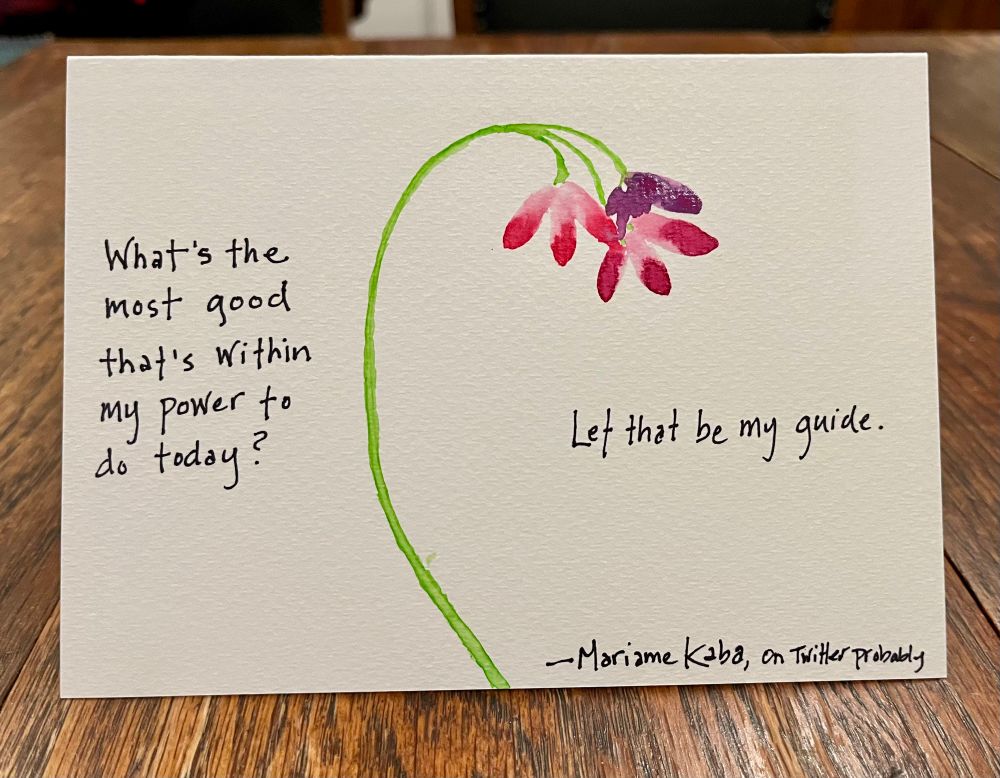 What's the
most good
that's within
my power to
do today?
Let that be my guide.
—Mariame Kaba, on Twitter probably